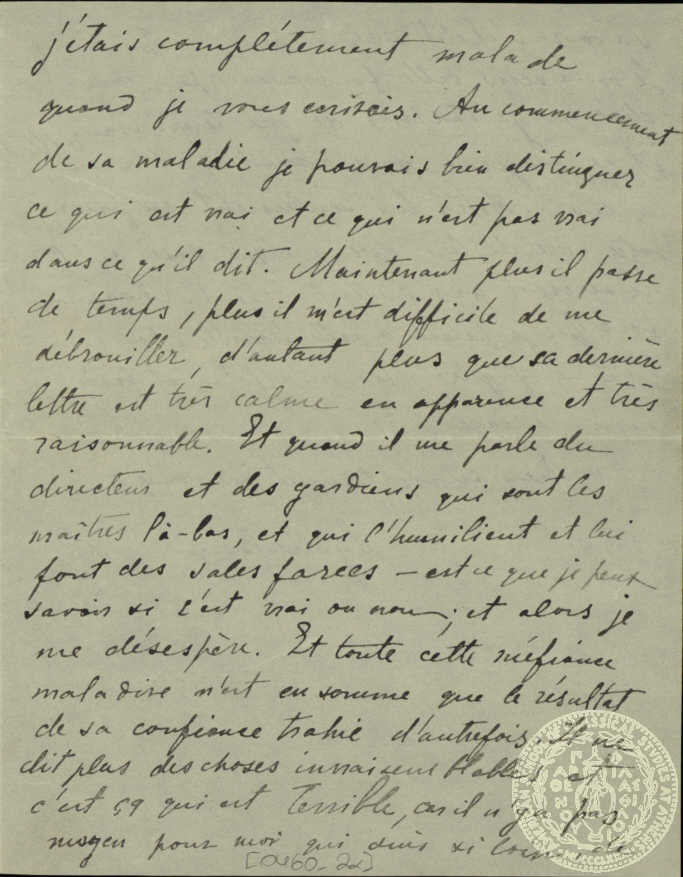 j'étais complétement malade
quand je vous écrivais. Au commencement
de sa maladie je pouvais bien distinguer
ce qui est vrai et ce qui n'est pas vrai
dans ce qu'il dit. Maintenant plus il passe
de temps, plus il m'est difficile de me
débrouiller, d'autant plus que sa dernière
lettre est très calme en apparence et très
raisonnable. Et quand il me parle du
directeur et des gardiens qui sont les
maîtres là-bas, et qui l'humilient et lui
font des sales farces — est ce que je peux
savoir si c'est vrai ou non; et alors je
me désespère. Et toute cette méfiance
maladive n'est en somme que le résultat
de sa confiance trahie d'autrefois. Il ne
dit plus des choses invraisemblables et
c'est ça qui est terrible, car il n'y a pas
moyen pour moi qui suis si loin, de
[0460-2α]